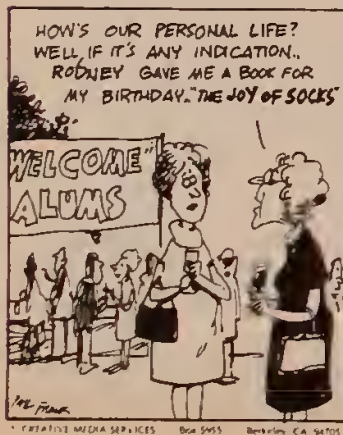 HOW'S OUR PERSONAL LIFE?
WELL IF IT'S ANY INDICATION..
RODNEY GAVE ME A BOOK FOR
MY BIRTHDAY.."THE JOY OF SOCKS"
WELCOME
ALUMS
CREATIVE MEDIA SERVICES Box 5955 Berkeley, CA. 94705